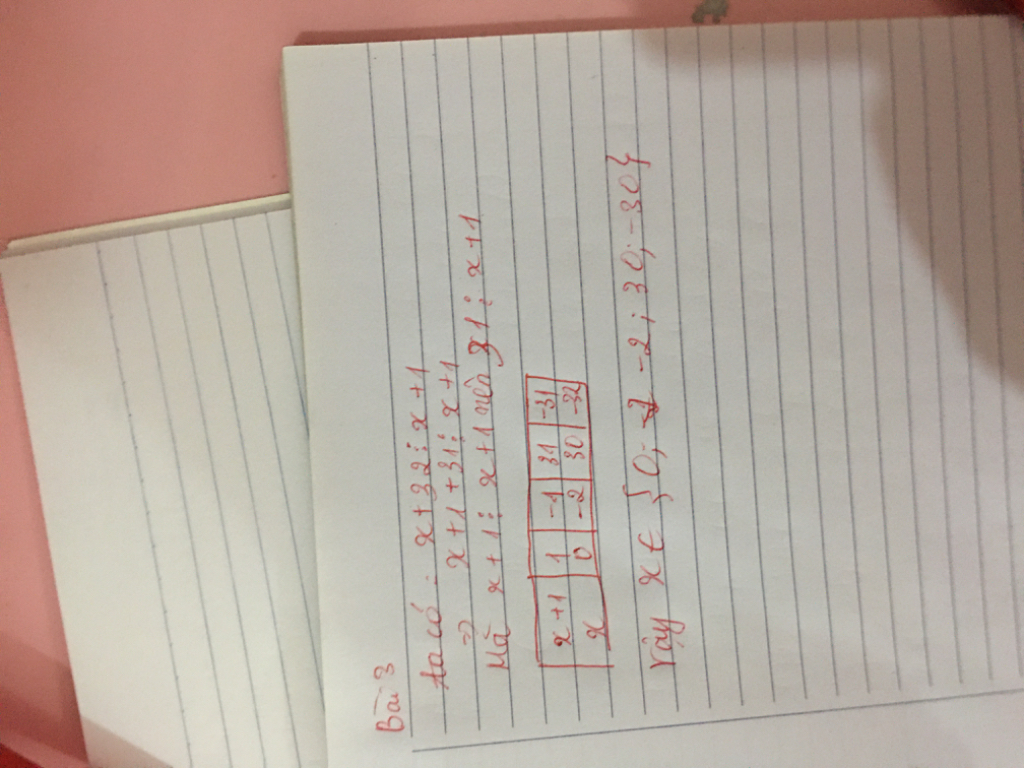 Bài 3
Ta có: x+32⋮x+1
=> x+1+31⋮x+1
Mà x+1⋮x+1 nên 31⋮x+1
x+1 | 1 | -1 | 31 | -31
x | 0 | -2 | 30 | -32
Vậy x∈{0; -2; 30; -30}